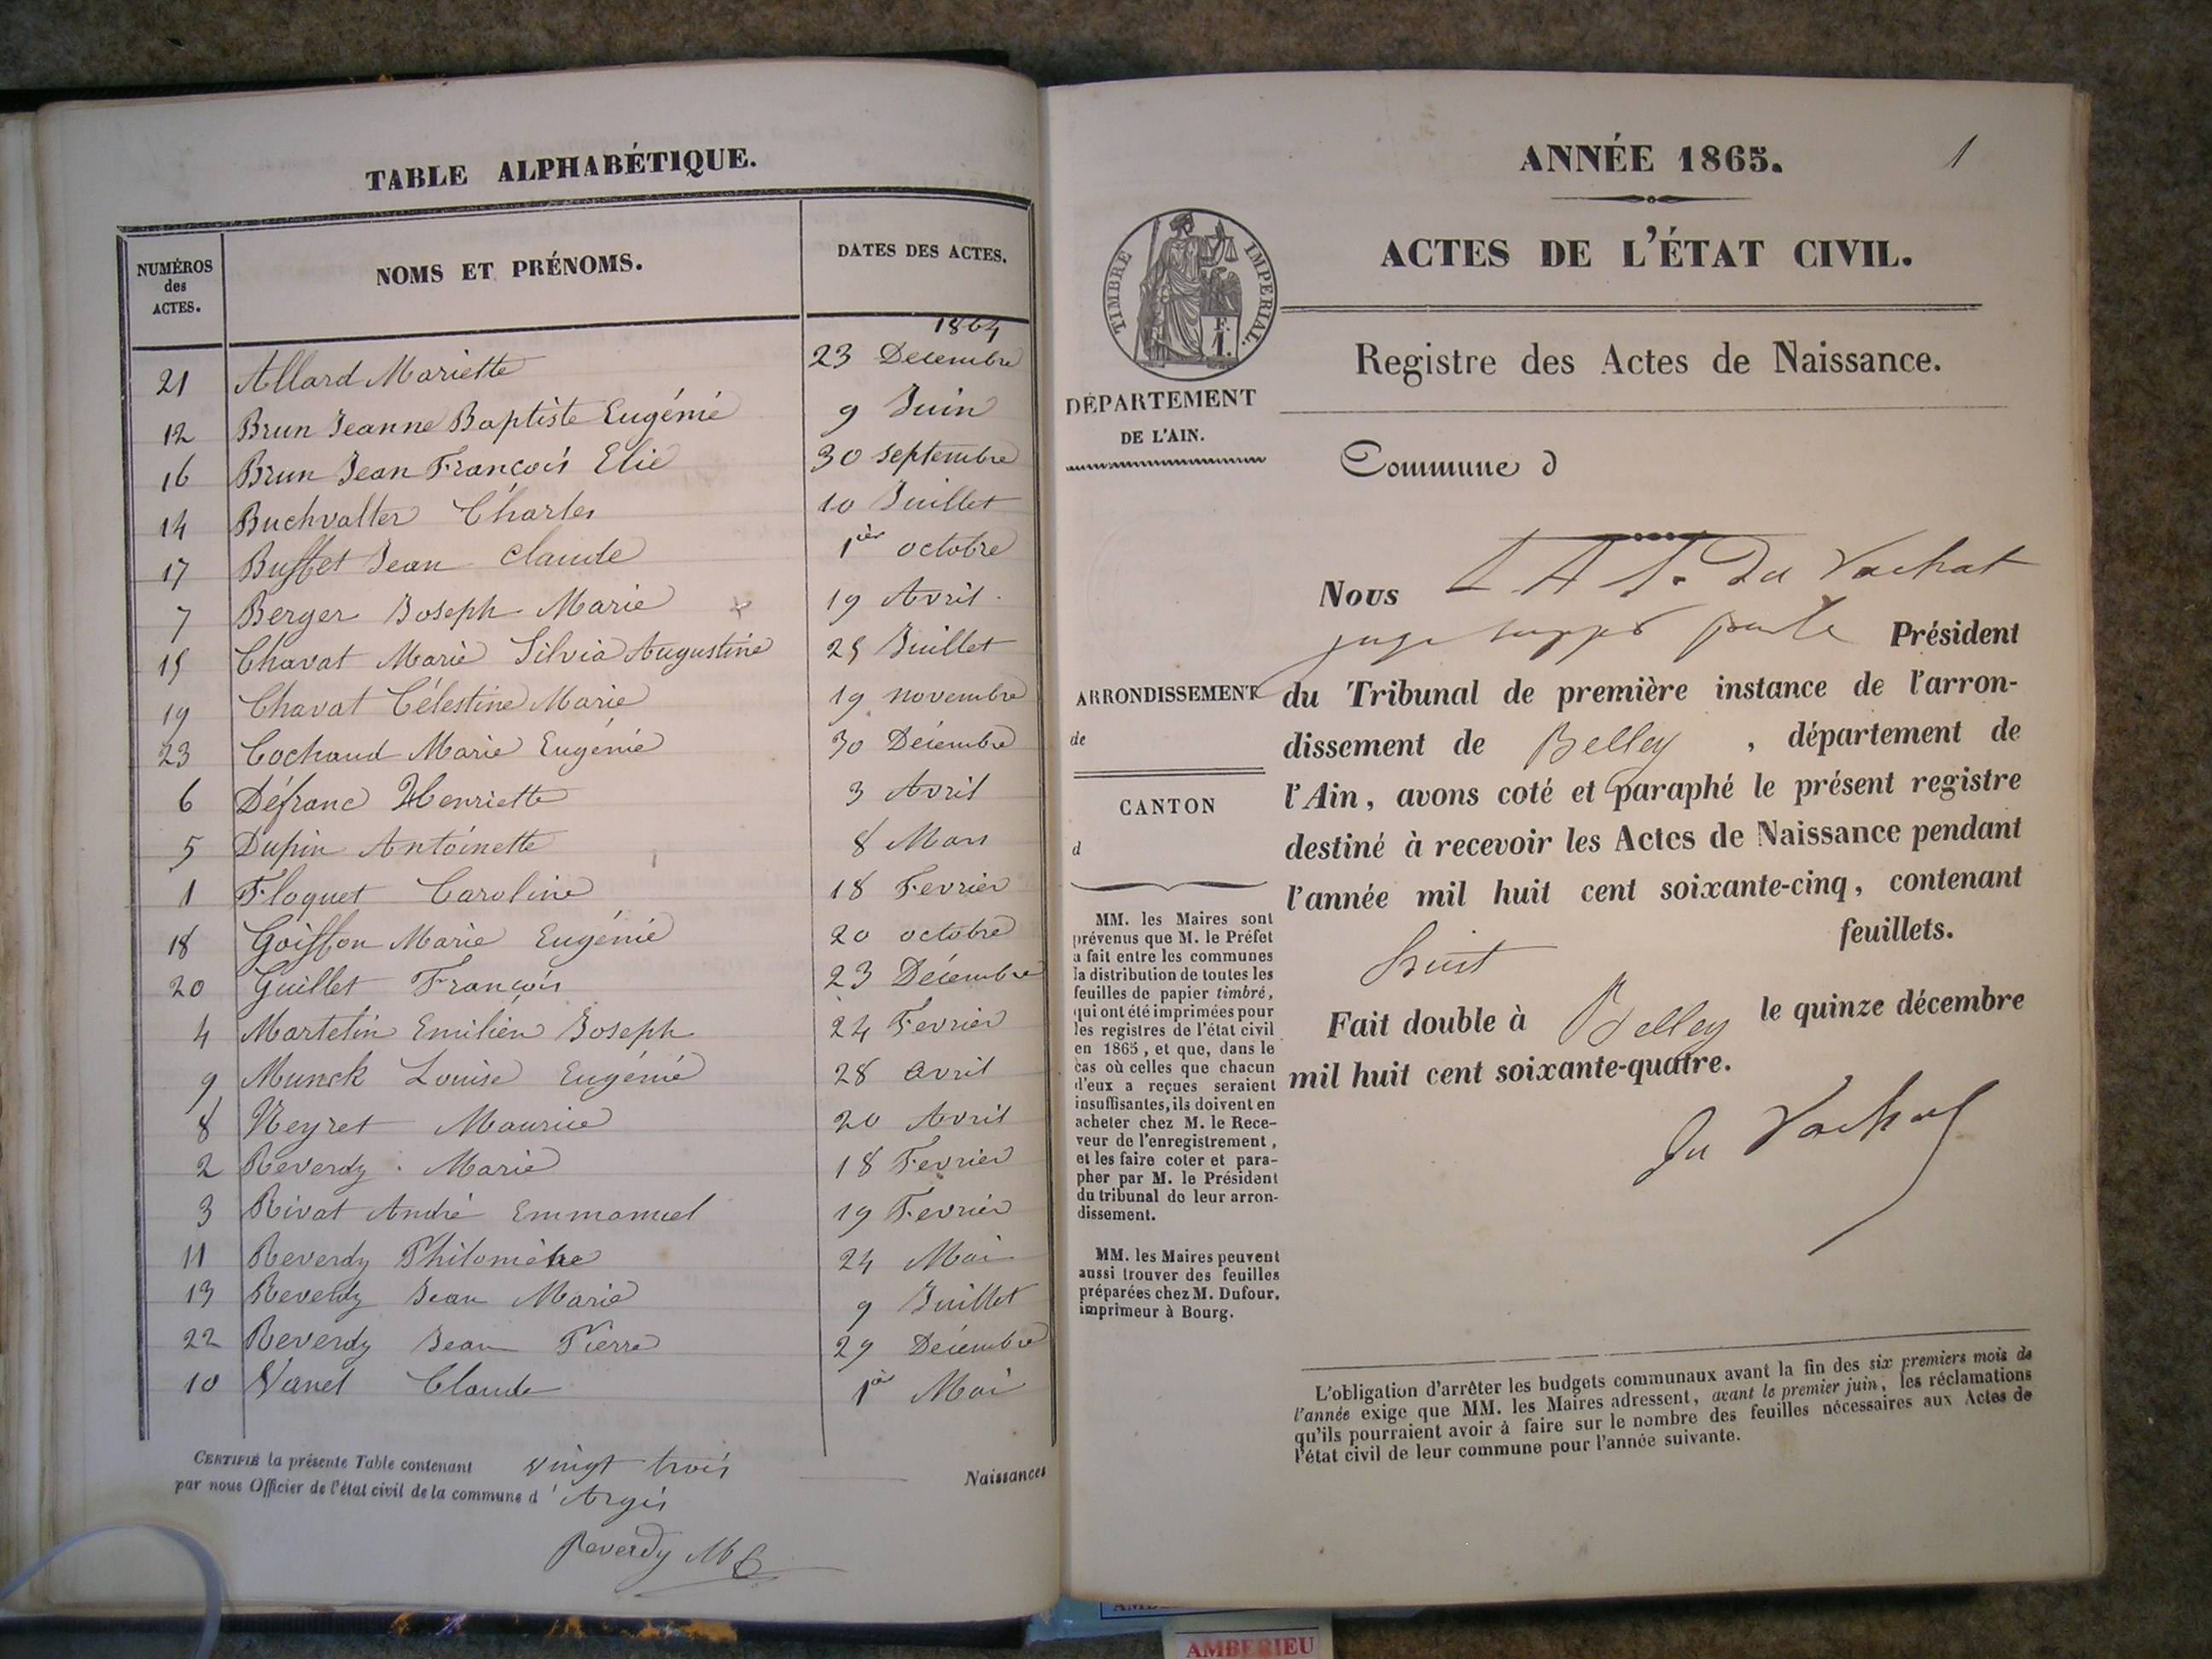 TABLE ALPHABÉTIQUE.
NUMÉROS des ACTES.
NOMS ET PRÉNOMS.
DATES DES ACTES.
1864
21 Allard Mariette 23 Decembre
12 Brun Jeanne Baptiste Eugénie 9 Juin
16 Brun Jean François Elie 30 septembre
14 Buchvalter Charles 10 Juillet
17 Buffet Jean Claude 1ier octobre
7 Berger Joseph Marie 19 Avril
15 Chavat Marie Silvia Augustine 25 Juillet
19 Chavat Célestine Marie 19 novembre
23 Cochaud Marie Eugénie 30 Décembre
6 Défranc Henriette 3 Avril
5 Dupin Antoinette 8 Mars
1 Floquet Caroline 18 Fevrier
18 Goiffon Marie Eugénie 20 octobre
20 Guillet François 23 Décembre
4 Martelin Emilien Joseph 24 Fevrier
9 Munck Louise Eugénie 28 avril
8 Neyret Maurice 20 Avril
2 Reverdy Marie 18 Fevrier
3 Rivat André Emmanuel 19 Fevrier
11 Reverdy Philomène 24 Mai
13 Reverdy Jean Marie 9 Juillet
22 Reverdy Jean Pierre 29 Décembre
10 Vanel Claude 1er Mai
CERTIFIÉ la présente Table contenant vingt trois Naissances
par nous Officier de l'état civil de la commune d'Argis
Reverdy
ANNÉE 1865.
1
ACTES DE L'ÉTAT CIVIL.
TIMBRE IMPERIAL.
F.
1.
Registre des Actes de Naissance.
DÉPARTEMENT
DE L'AIN.
Commune d
Nous Du Vachat
juge Président
ARRONDISSEMENT
de
CANTON
d
du Tribunal de première instance de l'arron-
dissement de Belley, département de
l'Ain, avons coté et paraphé le présent registre
destiné à recevoir les Actes de Naissance pendant
l'année mil huit cent soixante-cinq, contenant
huit feuillets.
Fait double à Belley le quinze décembre
mil huit cent soixante-quatre.
Du Vachat
MM. les Maires sont
prévenus que M. le Préfet
a fait entre les communes
la distribution de toutes les
feuilles de papier timbré,
qui ont été imprimées pour
les registres de l'état civil
en 1865, et que, dans le
cas où celles que chacun
d'eux a reçues seraient
insuffisantes, ils doivent en
acheter chez M. le Rece-
veur de l'enregistrement,
et les faire coter et para-
pher par M. le Président
du tribunal de leur arron-
dissement.
MM. les Maires peuvent
aussi trouver des feuilles
préparées chez M. Dufour,
imprimeur à Bourg.
L'obligation d'arrêter les budgets communaux avant la fin des six premiers mois de
l'année exige que MM. les Maires adressent, avant le premier juin, les réclamations
qu'ils pourraient avoir à faire sur le nombre des feuilles nécessaires aux Actes de
l'état civil de leur commune pour l'année suivante.
AMBERIEU